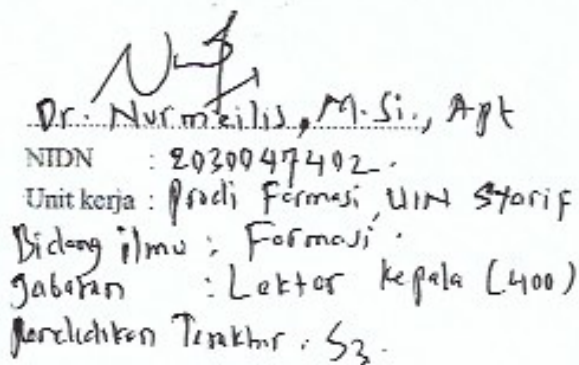 Dr. Nurmeilis, M.Si., Apt
NIDN : 2030047402.
Unit kerja : Prodi Farmasi, UIN Syarif
Bidang ilmu : Farmasi.
Jabatan : Lektor Kepala (400)
Pendidikan Terakhir : S3.